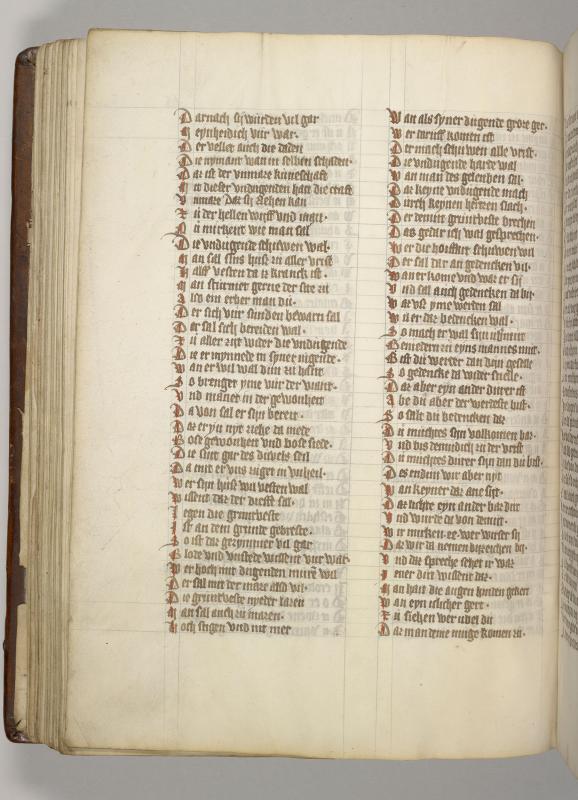 Darnach sij wurden vil gar
Meynheidich vur war·
Der vellet auch die daden
Die nyman wan in selben schaden·
Daz ist der vnmaze kuneschaft
An dieser vndugenden hait die craft
Vnmaze daz sij zehen kan
Zu der hellen wijff vnd man·
Nu mirkent wie man sal
Die vndugende schiewen wal·
Man sal sins huse zu aller vrist
Half vesten da iz kranck ist·
Man sturmet gerne der site zu
Also ein erber man du·
Der sich vur sunden bewarn sal
Der sal sich bereiden wal·
Zu aller zijt wider die vndugende
Die er mynnede in syner iugende·
Wan er wil wal dun zu hant
So brenget yme vur der viant·
Vnd manet in der gewonheit
Da von sal er sijn bereit·
Daz er yn nyt ziehe da mede
Bose gewonheit vnd bose siede·
Die sint gar des duvels seil
Da mit er vns zuget in vnheil·
Wer sijn huse wil vesten wal
Wissent daz der diesse sal·
Iegen die gruntveste
Ist an dem grunde gebreste·
So ist daz gezymmer vil gar
Blode vnd vnstede wissent vur war·
Wer hoch mit dugenden muren wil
Der sal mit der maze alss vil·
Die gruntveste nyeder lazen
Man sal auch zu mazen·
Hoch stigen vnd nit mer
Wan als syner dugende groze ger·
Wer daruff komen ist
Der mach schuwen alle vrist·
Die vndugende harde wal
Wan man des gelouben sal·
Daz keyne vndugende mach
Durch keynen herren slach·
Der demut gruntveste brechen
Daz gedar ich wal gesprechen·
Wer die hoiffart schuwen wil
Der sal dar an gedencken vil·
Wan er kome vnd waz er sij
Vnd sal auch gedencken da bij·
Waz vß yme werden sal
Wil er daz bedencken wal·
So mach er wal syn vbermut
Geniedern zu eyns mannes mut·
Bist du werder dan dijn geselle
So gedencke da wider snelle·
Daz aber eyn ander durer ist
Abe du aber der werdeste bist·
So salt du bedencken daz
Du muchtes sijn volkomen baz·
Vnd bis demudich zu der vrist
Du muchtes durer sijn dan du bist·
Des endun wir aber nyt
Wan keyner daz ane sijt·
Daz lichte eyn ander baz dut
Vnd wurde da von demut·
Wir mirken ee wer wirser sij
Daz wir da nemen bizeichen bij·
Vnd daz spreche sehet ir waz
Iener dut wissent daz·
Man hait die augen hinden gekert
Wan eyn iclicher gert·
Zu siehen wer ubel du
Daz man deme muge komen zu·